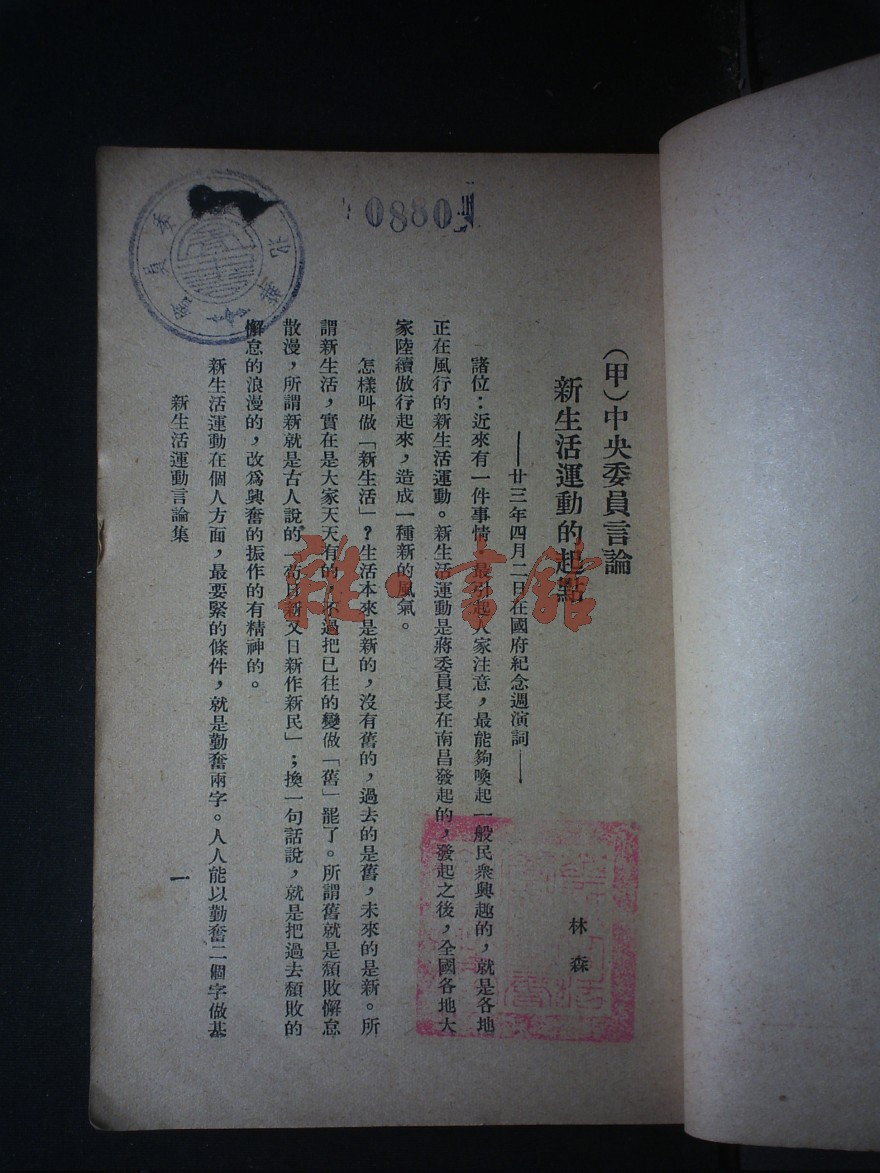 (甲)中央委員言論
新生活運動的起點
——廿三年四月二日在國府紀念週演詞——
林森
諸位:近來有一件事情,最引起大家注意,最能夠喚起一般民衆興趣的,就是各地
正在風行的新生活運動。新生活運動是蔣委員長在南昌發起的,發起之後,全國各地大
家陸續倣行起來,造成一種新的風氣。
怎樣叫做「新生活」?生活本來是新的,沒有舊的,過去的是舊,未來的是新。所
謂新生活,實在是大家天天有的,不過把已往的變做「舊」罷了。所謂舊就是頹敗懈怠
散漫,所謂新就是古人說的「苟日新又日新作新民」;換一句話說,就是把過去頹敗的
懈怠的浪漫的,改爲興奮的振作的有精神的。
新生活運動在個人方面,最要緊的條件,就是勤奮兩字。人人能以勤奮二個字做基
新生活運動言論集
一
08801
雜·書館
委員會